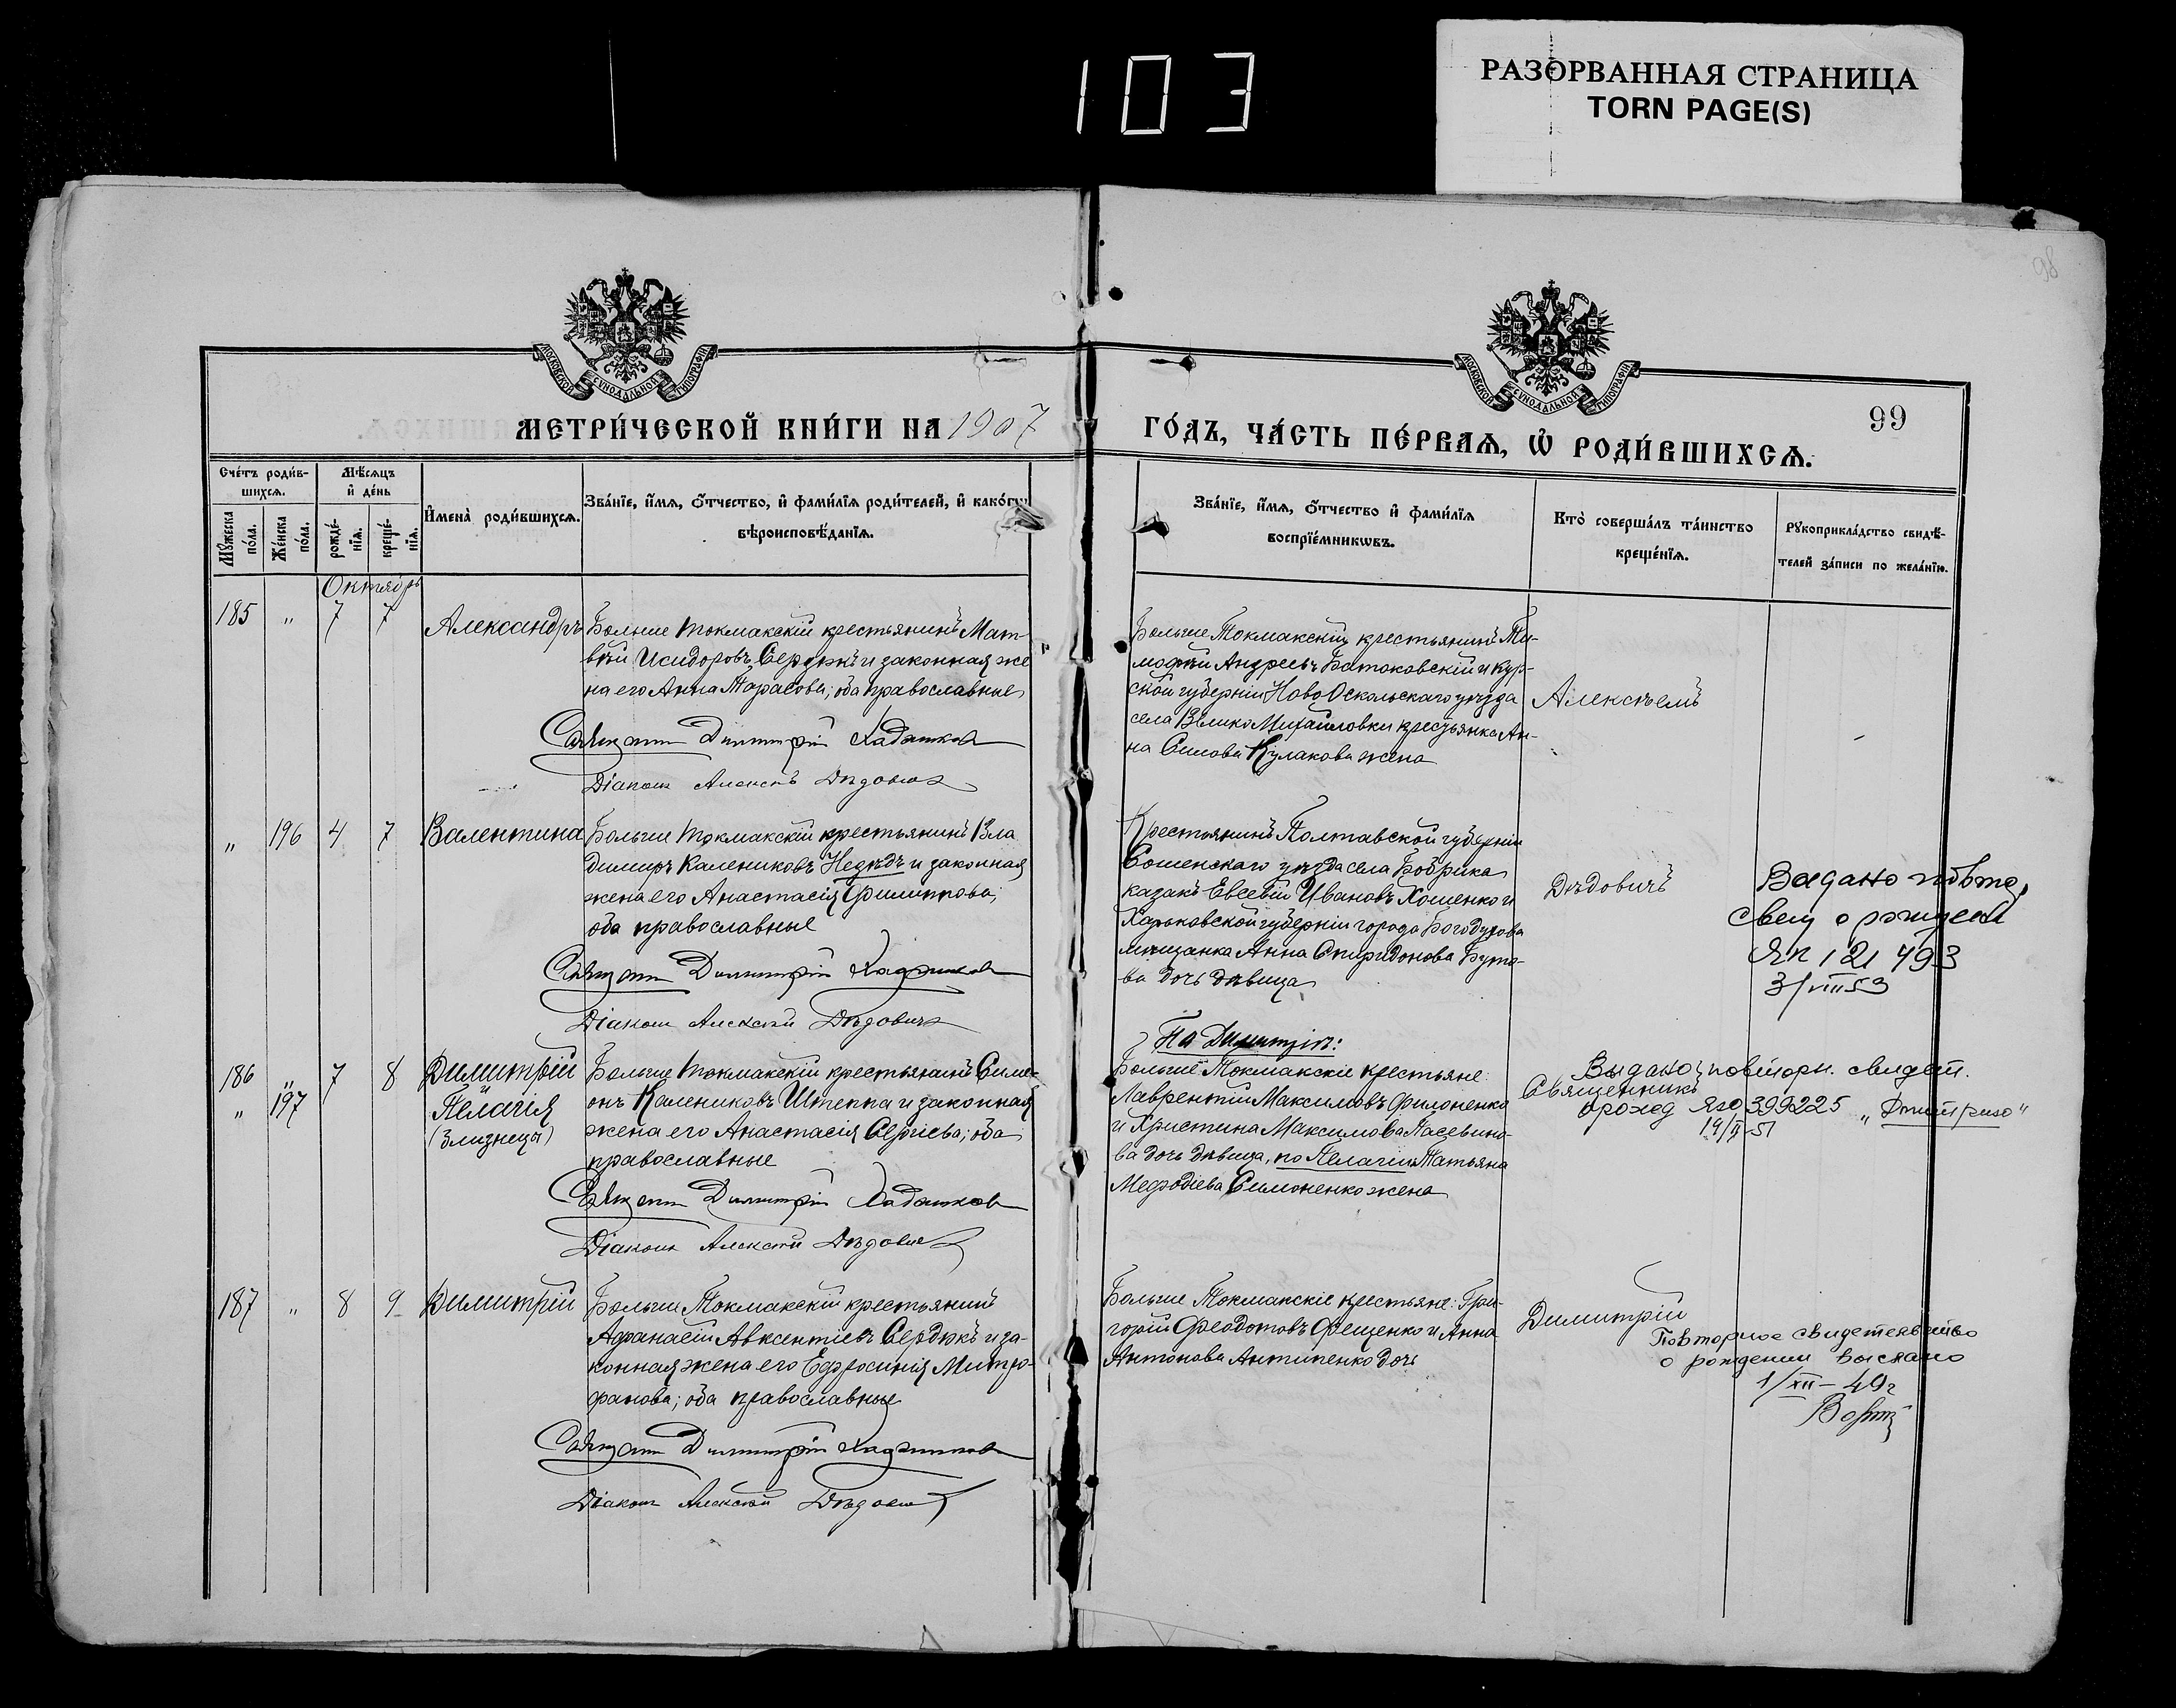 103
РАЗОРВАННАЯ СТРАНИЦА
TORN PAGE(S)
98
МОСКОВСКОЙ СУНОДАЛЬНОЙ ТИПОГРАФІИ
МОСКОВСКОЙ СУНОДАЛЬНОЙ ТИПОГРАФІИ
МЕТРИ́ЧЕСКОЙ КНИ́ГИ НА 1907
ГО́ДЪ, ЧА́СТЬ ПЕ́РВАѦ, Ѡ҆ РОДИ́ВШИХСѦ.
99
Сче́тъ роди́в-
шихсѧ.
Мѣ́сѧцъ
и҆ де́нь
Мꙋ́жеска
по́ла.
Же́нска
по́ла.
рожде́-
нїѧ.
креще́-
нїѧ.
И҆мена̀ роди́вшихсѧ.
Зва́нїе, и҆́мѧ, ѻ҆́тчество, и҆ фами́лїѧ роди́телей, и҆ како́гѡ
вѣроисповѣ́данїѧ.
Зва́нїе, и҆́мѧ, ѻ҆́тчество и҆ фами́лїѧ
воспрїе́мникѡвъ.
Кто̀ соверша́лъ та́инство
креще́нїѧ.
Рꙋкоприкла́дство свидѣ́-
телей за́писи по жела́нїю.
Октябрь
185 " 7 7
Александръ
Больше Токмакскій крестьянинъ Мат-
вѣй Исидоровъ Сердюкъ и законная же
на его Анна Тарасова; оба православные
Священн Димитрій
Діаконъ Алексѣй Дѣдовичъ
Больше Токмакскій крестьянинъ Ти-
мофей Андреевъ Батоковскій и Кур-
ской губерніи Ново Оскольскаго уѣзда
села Велико Михайловки крестьянка Ан-
на Силова Кулакова жена
Алексѣемъ
" 196 4 7
Валентина
Больше Токмакскій крестьянинъ Вла
димиръ Калениковъ Недѣдъ и законная
жена его Анастасія Филиппова;
оба православные
Священн Димитрій
Діаконъ Алексѣй Дѣдовичъ
Крестьянинъ Полтавской губерніи
уѣзда села Бобрика
казакъ Евсевій Ивановъ Хоменко и
Харьковской губерніи города Богодухова
мѣщанка Анна Спиридонова Буто-
ва дочь дѣвица
Дѣдовичъ
Выдано повто
свид о рожден
ЯП 121 493
3/VIII 53
186 " 7 8
" 197
Димитрій
и
Пелагія
(близнецы)
Больше Токмакскій крестьянинъ Симе-
онъ Калениковъ Штеппа и законная
жена его Анастасія Сергіева; оба
православные
Священн Димитрій
Діаконъ Алексѣй Дѣдовичъ
По Димитріѣ:
Больше Токмакскіе крестьяне:
Лаврентій Максимовъ Филоненко
и Христина Максимова
ва дочь дѣвица, по Пелагіи Татьяна
Мефодіева Симоненко жена
Священникъ
Выдано повторн. свидет.
о рожд ЯЮ 399225 "Дмитрию"
19/II-51
187 " 8 9
Димитрій
Больше Токмакскій крестьянинъ
Афанасій Авксентіевъ Сердюкъ и за-
конная жена его Ефросинія Митро-
фанова; оба православные
Священн Димитрій
Діаконъ Алексѣй Дѣдовичъ
Больше Токмакскіе крестьяне: Гри-
горій Феодотовъ Фещенко и Анна
Антонова Антипенко дочь
Димитрій
Повторное свидетельство
о рождении выслано
1/XII-49г